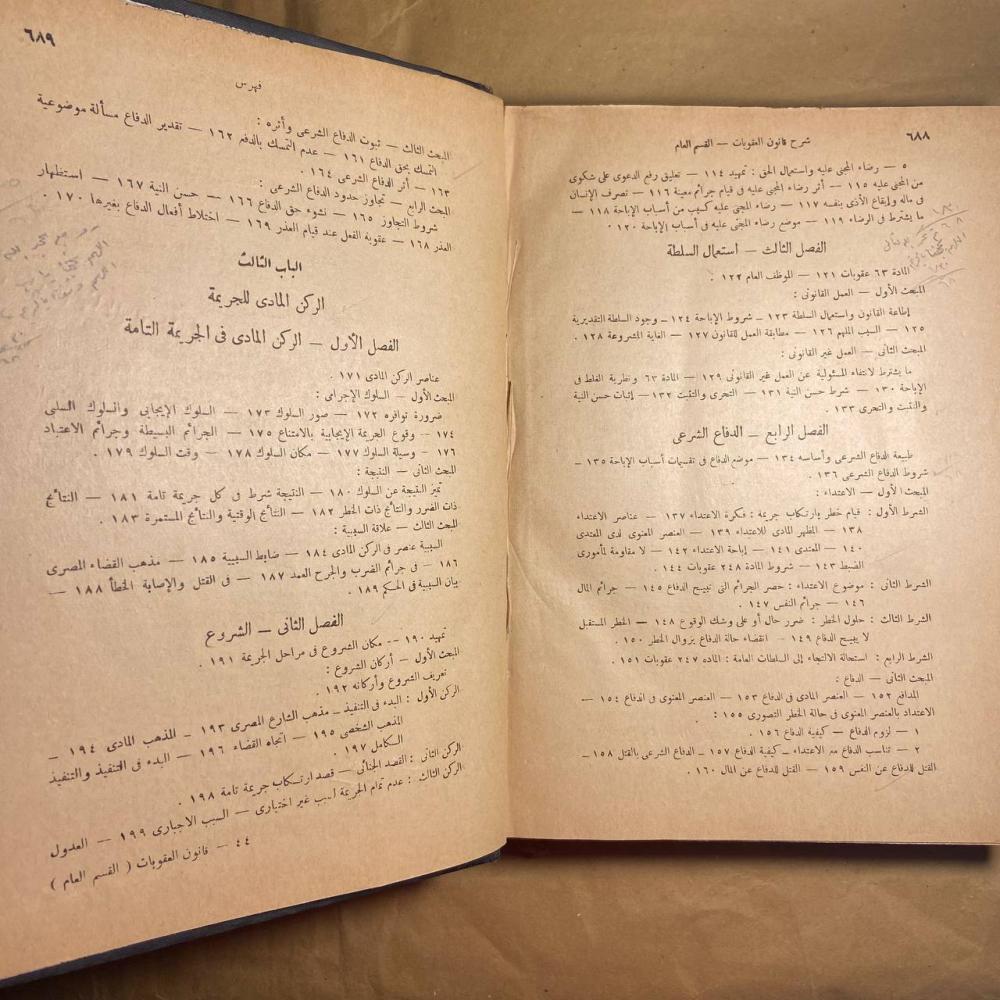 ٦٨٨
شرح قانون العقوبات — القسم العام
٥ — رضاء المجنى عليه واستعمال الحق : تمهيد ١١٤ — تعليق رفع الدعوى على شكوى
من المجنى عليه ١١٥ — أثر رضاء المجنى عليه فى قيام جرائم معينة ١١٦ — تصرف الإنسان
فى ماله وإيقاع الأذى بنفسه ١١٧ — رضاء المجنى عليه كسبب من أسباب الإباحة ١١٨ —
ما يشترط فى الرضاء ١١٩ — موضع رضاء المجنى عليه فى أسباب الإباحة ١٢٠ .
الفصل الثالث — استعمال السلطة
المادة ٦٣ عقوبات ١٢١ — الموظف العام ١٢٢ .
المبحث الأول — العمل القانونى :
إطاعة القانون واستعمال السلطة ١٢٣ — شروط الإباحة ١٢٤ — وجود السلطة التقديرية
١٢٥ — السبب الملهم ١٢٦ — مطابقة العمل للقانون ١٢٧ — الغاية المشروعة ١٢٨ .
المبحث الثانى — العمل غير القانونى :
ما يشترط لانتفاء المسئولية عن العمل غير القانونى ١٢٩ — المادة ٦٣ ونظرية الغلط فى
الإباحة ١٣٠ — شرط حسن النية ١٣١ — التحرى والتثبت ١٣٢ — إثبات حسن النية
والتثبت والتحرى ١٣٣ .
الفصل الرابع — الدفاع الشرعى
طبيعة الدفاع الشرعى وأساسه ١٣٤ — موضع الدفاع فى تقسيمات أسباب الإباحة ١٣٥ —
شروط الدفاع الشرعى ١٣٦ .
المبحث الأول — الاعتداء :
الشرط الأول : قيام خطر بارتكاب جريمة : فكرة الاعتداء ١٣٧ — عناصر الاعتداء
١٣٨ — المظهر المادى للاعتداء ١٣٩ — العنصر المعنوى لدى المعتدى
١٤٠ — المعتدى ١٤١ — إباحة الاعتداء ١٤٢ — لا مقاومة لمأمورى
الضبط ١٤٣ — شروط المادة ٢٤٨ عقوبات ١٤٤ .
الشرط الثانى : موضوع الاعتداء : حصر الجرائم التى تبيح الدفاع ١٤٥ — جرائم المال
١٤٦ — جرائم النفس ١٤٧ .
الشرط الثالث : حلول الخطر : ضرر حال أو على وشك الوقوع ١٤٨ — الخطر المستقبل
لا يبيح الدفاع ١٤٩ — انقضاء حالة الدفاع بزوال الخطر ١٥٠ .
الشرط الرابع : استحالة الالتجاء إلى السلطات العامة : المادة ٢٤٧ عقوبات ١٥١ .
المبحث الثانى — الدفاع :
المدافع ١٥٢ — العنصر المادى فى الدفاع ١٥٣ — العنصر المعنوى فى الدفاع ١٥٤ —
الاعتداد بالعنصر المعنوى فى حالة الخطر التصورى ١٥٥ :
١ — لزوم الدفاع — كيفية الدفاع ١٥٦ .
٢ — تناسب الدفاع مع الاعتداء — كيفية الدفاع ١٥٧ — الدفاع الشرعى بالقتل ١٥٨ —
القتل للدفاع عن النفس ١٥٩ — القتل للدفاع عن المال ١٦٠ .
٦٨٩
فهرس
المبحث الثالث — ثبوت الدفاع الشرعى وأثره :
التمسك بحق الدفاع ١٦١ — عدم التمسك بالدفع ١٦٢ — تقدير الدفاع مسألة موضوعية
١٦٣ — أثر الدفاع الشرعى ١٦٤ .
المبحث الرابع — تجاوز حدود الدفاع الشرعى :
شروط التجاوز ١٦٥ — نشوء حق الدفاع ١٦٦ — حسن النية ١٦٧ — استظهار
العذر ١٦٨ — عقوبة الفعل عند قيام العذر ١٦٩ — اختلاط أفعال الدفاع بغيرها ١٧٠ .
الباب الثالث
الركن المادى للجريمة
الفصل الأول — الركن المادى فى الجريمة التامة
عناصر الركن المادى ١٧١ .
المبحث الأول — السلوك الإجرامى :
ضرورة توافره ١٧٢ — صور السلوك ١٧٣ — السلوك الإيجابى والسلوك السلبى
١٧٤ — وقوع الجريمة الإيجابية بالامتناع ١٧٥ — الجرائم البسيطة وجرائم الاعتياد
١٧٦ — وسيلة السلوك ١٧٧ — مكان السلوك ١٧٨ — وقت السلوك ١٧٩ .
المبحث الثانى — النتيجة :
تميز النتيجة عن السلوك ١٨٠ — النتيجة شرط فى كل جريمة تامة ١٨١ — النتائج
ذات الضرر والنتائج ذات الخطر ١٨٢ — النتائج الوقتية والنتائج المستمرة ١٨٣ .
المبحث الثالث — علاقة السببية :
السببية عنصر فى الركن المادى ١٨٤ — ضابط السببية ١٨٥ — مذهب القضاء المصرى
١٨٦ — فى جرائم الضرب والجرح العمد ١٨٧ — فى القتل والإصابة الخطأ ١٨٨ —
بيان السببية فى الحكم ١٨٩ .
الفصل الثانى — الشروع
تمهيد ١٩٠ — مكان الشروع فى مراحل الجريمة ١٩١ .
المبحث الأول — أركان الشروع :
تعريف الشروع وأركانه ١٩٢ .
الركن الأول : البدء فى التنفيذ — مذهب الشارع المصرى ١٩٣ — المذهب المادى ١٩٤ —
المذهب الشخصى ١٩٥ — اتجاه القضاء ١٩٦ — البدء فى التنفيذ والتنفيذ
الكامل ١٩٧ .
الركن الثانى : القصد الجنائى — قصد ارتكاب جريمة تامة ١٩٨ .
الركن الثالث : عدم تمام الجريمة لسبب غير اختيارى — السبب الاجبارى ١٩٩ — العدول
٤٤ — قانون العقوبات ( القسم العام )